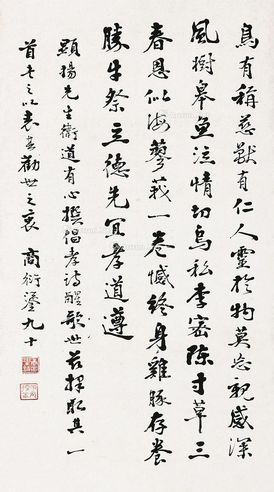 鳥有稱慈獸有仁人靈於物莫忘親感深
風樹皋魚泣情切烏私李密陳寸草三
春恩似海蓼莪一卷憾終身雞豚存養
勝牛祭立德先宜孝道遵
顯揚先生衛道有心撰倡孝詩醒世茲採取其一
首書之以表喜勸世之衷 商衍鎏九十